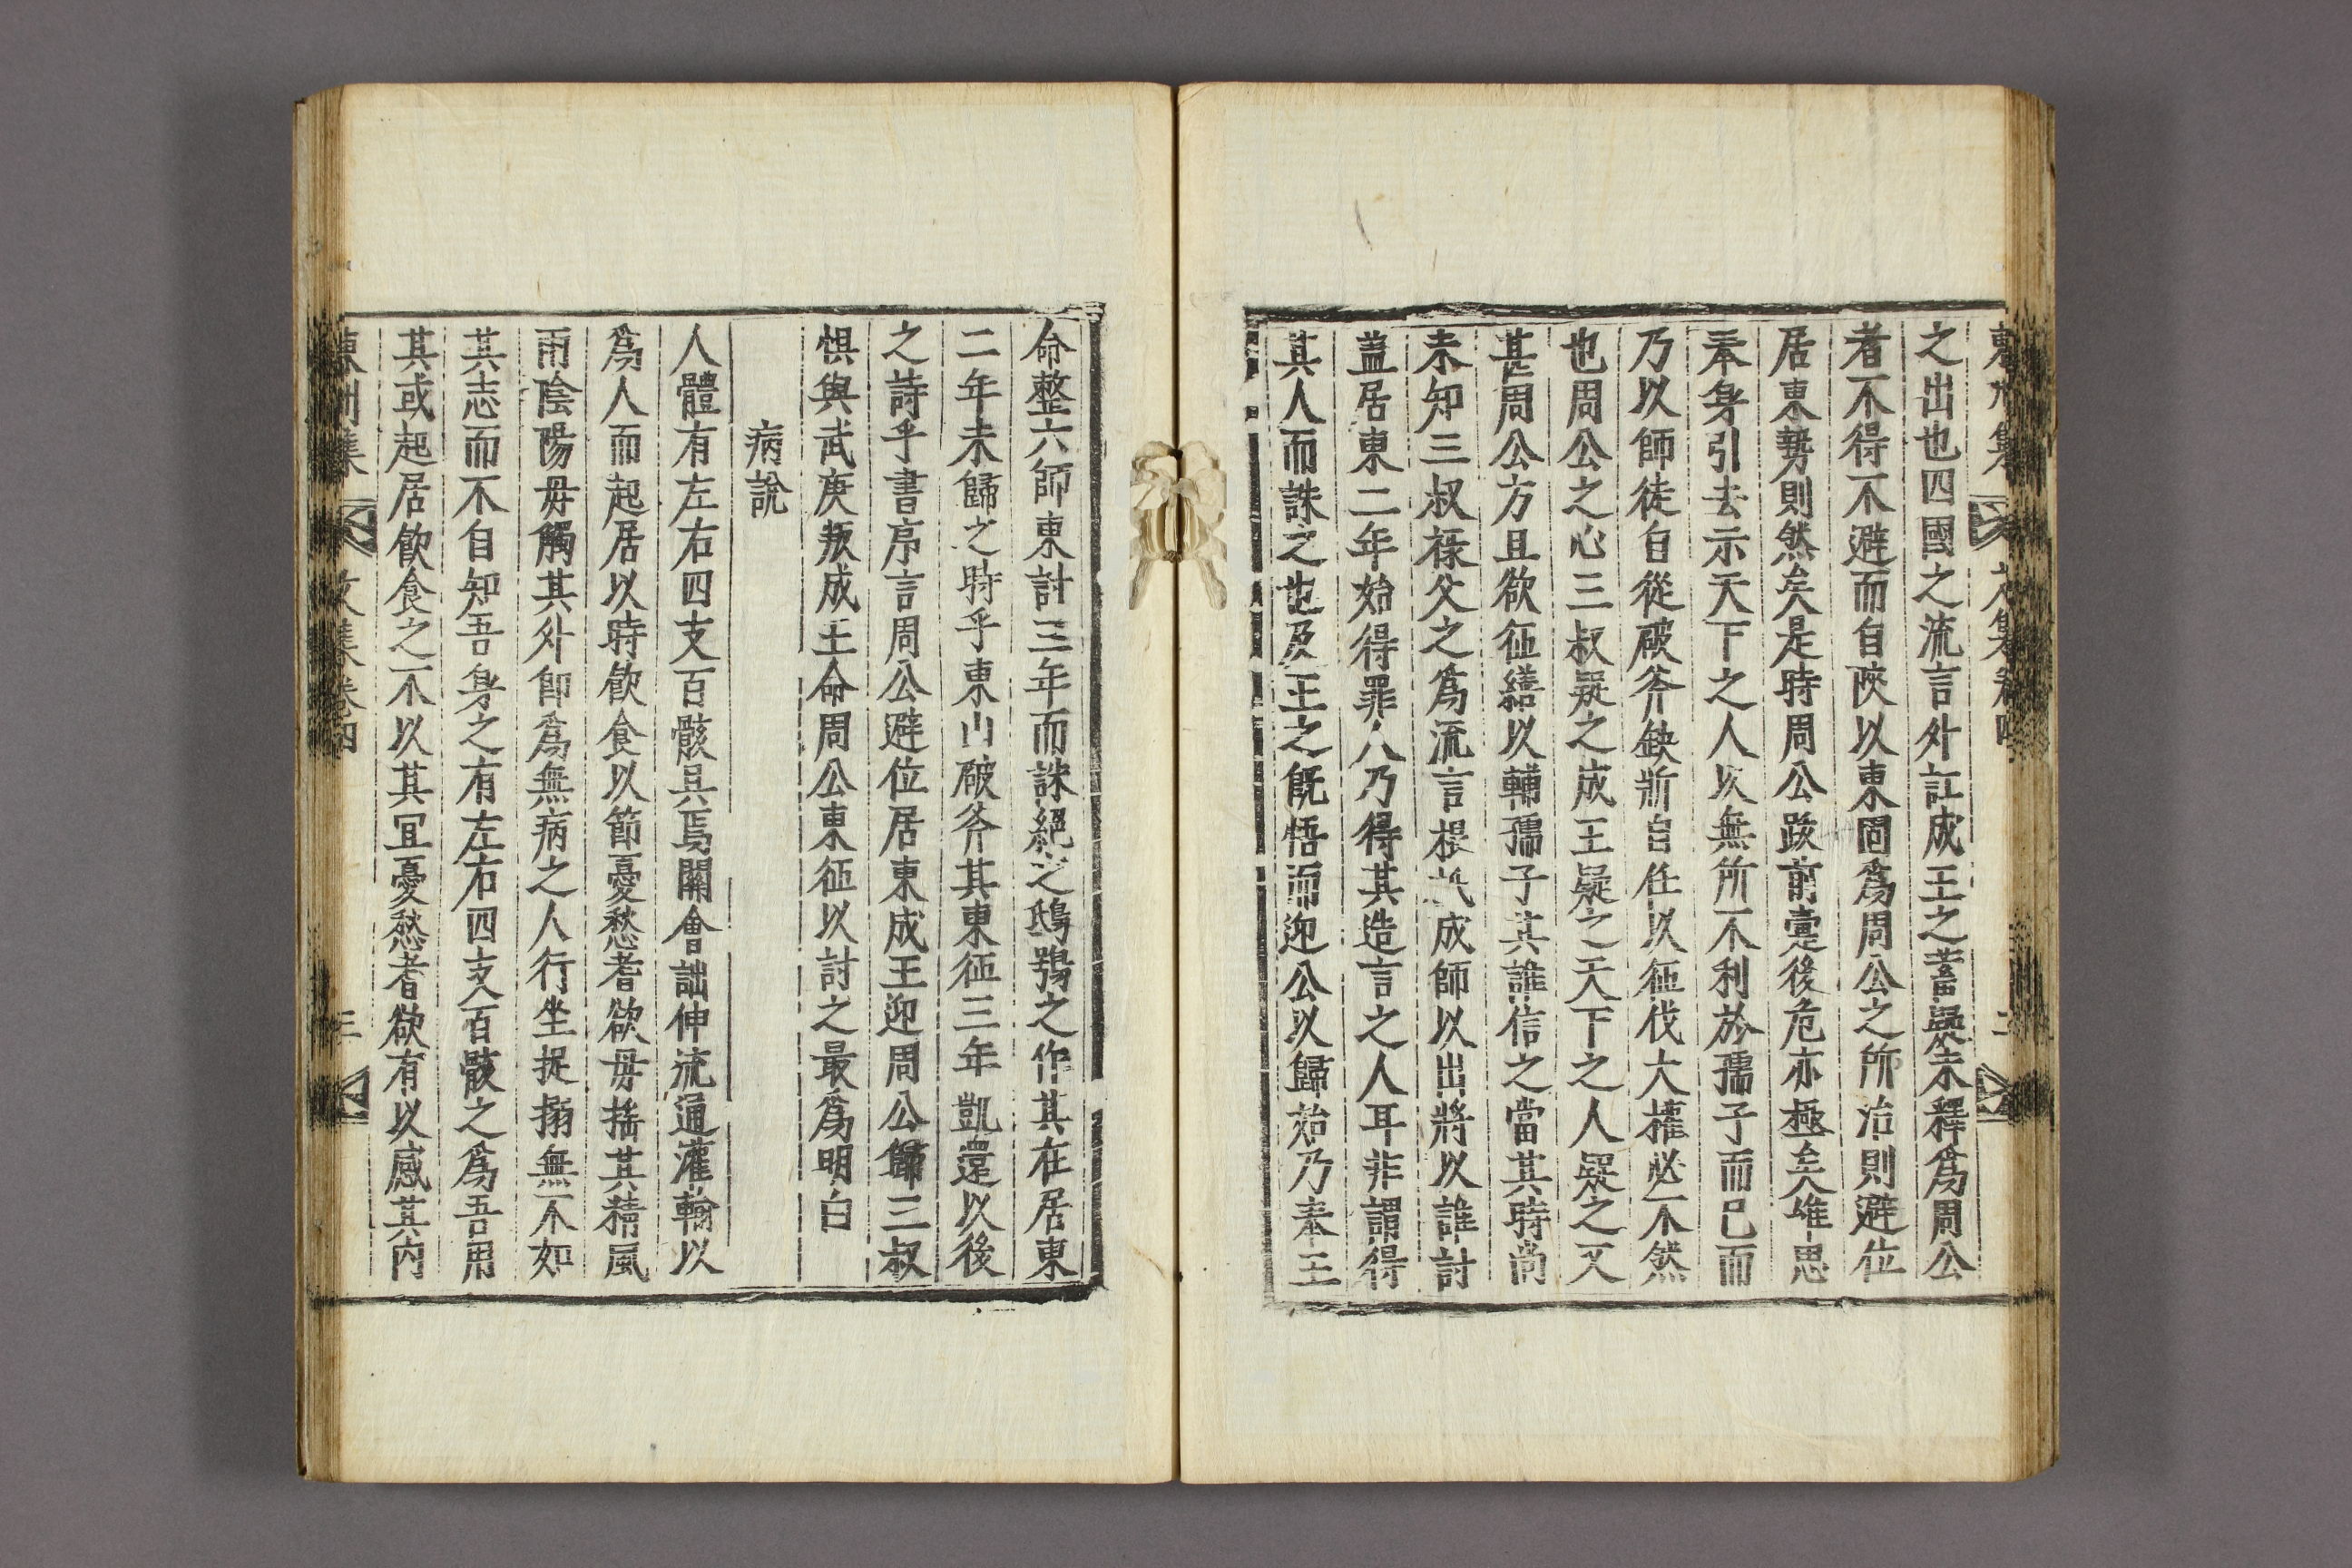 東州集 文集卷四 二
之出也四國之流言外訌成王之蓄疑未釋爲周公
者不得不避而自陜以東固爲周公之所治則避位
居東勢則然矣是時周公跋前疐後危亦極矣唯思
奉身引去示天下之人以無所不利於孺子而已而
乃以師徒自從破斧缺斨自任以征伐大權必不然
也周公之心三叔疑之成王疑之天下之人疑之又
甚周公方且欲征繕以輔孺子其誰信之當其時尚
未知三叔祿父之爲流言根柢成師以出將以誰討
蓋居東二年始得罪人乃得其造言之人耳非謂得
其人而誅之也及王之旣悟而迎公以歸始乃奉王
命整六師東討三年而誅絕之鴟鴞之作其在居東
二年未歸之時乎東山破斧其東征三年凱還以後
之詩乎書序言周公避位居東成王迎周公歸三叔
惧與武庚叛成王命周公東征以討之最爲明白
病說
人體有左右四支百骸具焉關會詘伸流通灌輸以
爲人而起居以時飮食以節憂愁耆欲毋搖其精風
雨陰陽毋觸其外卽爲無病之人行坐捉搦無不如
其志而不自知吾身之有左右四支百骸之爲吾用
其或起居飮食之不以其宜憂愁耆欲有以感其內
東州集 文集卷四 三